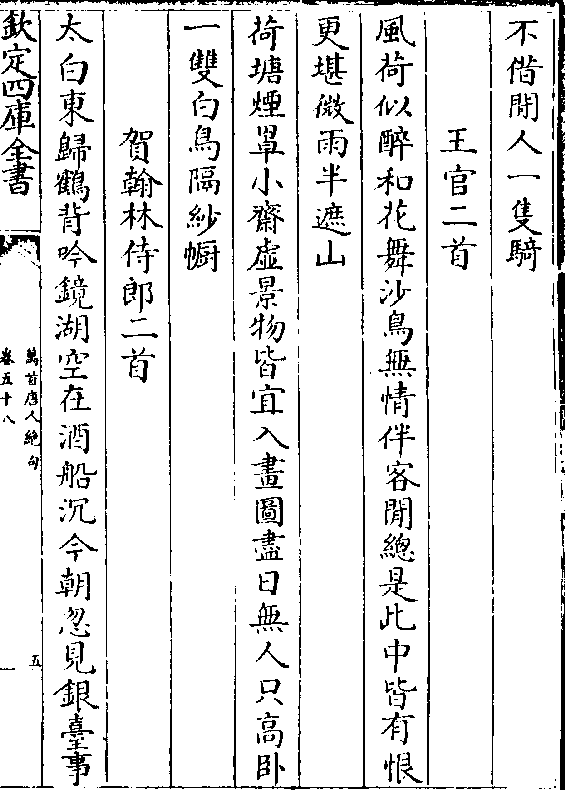 不借閒人一隻騎
王官二首
風荷似醉和花舞沙鳥無情伴客閒總是此中皆有恨
更堪微雨半遮山
荷塘煙罩小齋虛景物皆宜入畫圖盡日無人只高卧
一雙白鳥隔紗㡡
賀翰林侍郎二首
太白東歸鶴背吟鏡湖空在酒船沉今朝忽見銀臺事
欽定四庫全書
萬首唐人絶句
卷五十八
五